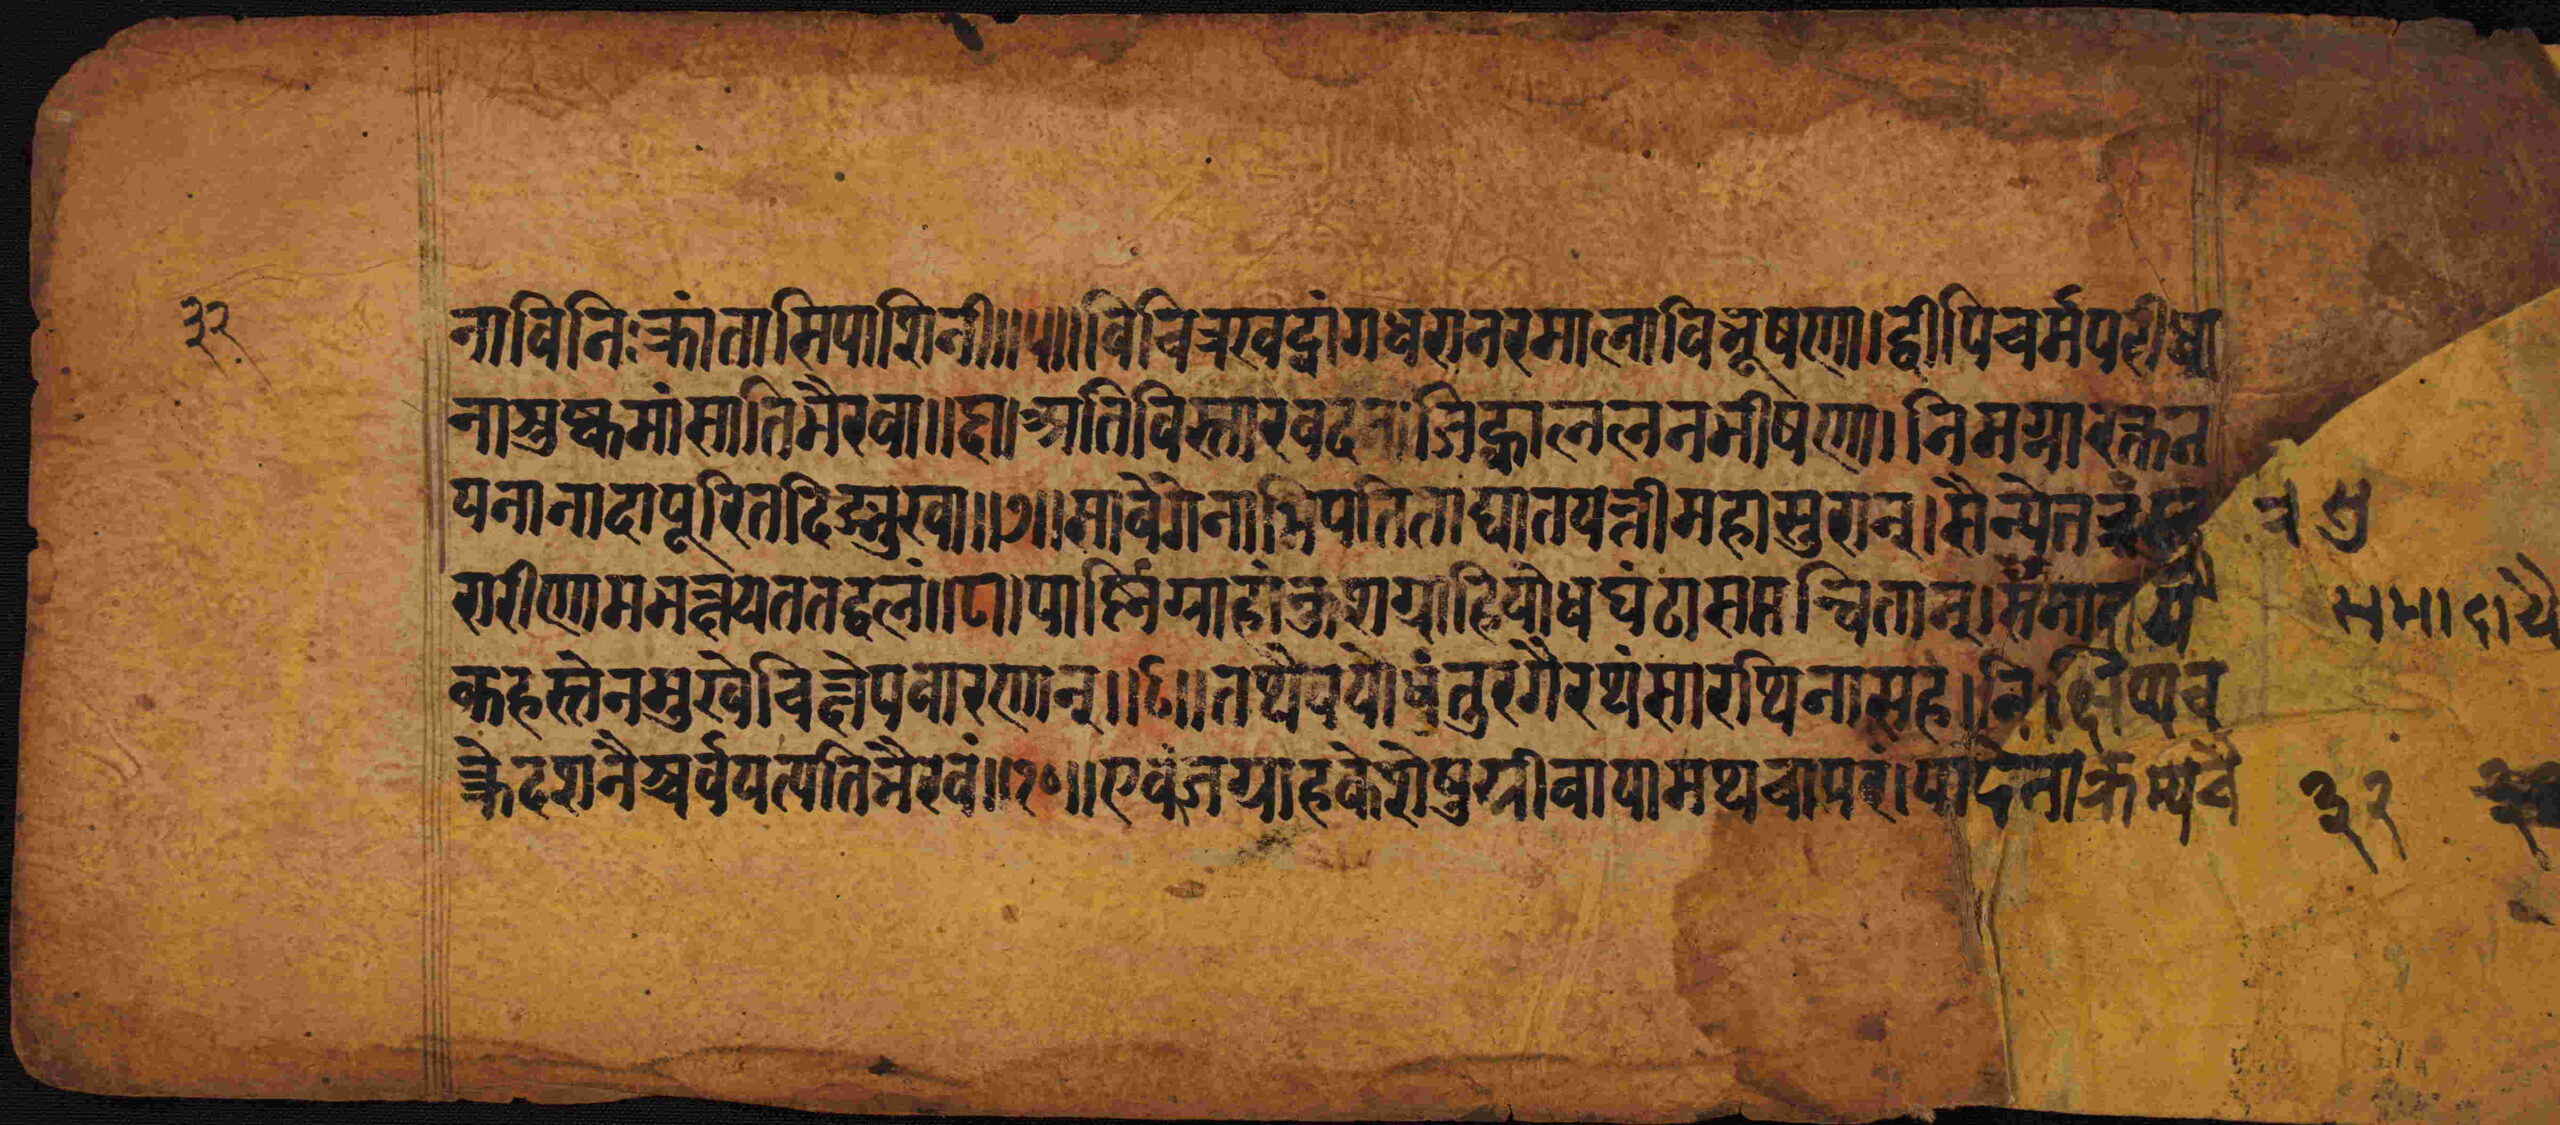 ३२
नाविनिःक्रांतासिपाशिनी॥५॥विचित्रखट्वांगधरानरमालाविभूषणा।द्वीपिचर्मपरीधा
नासुष्कमांसातिभैरवा॥६॥अतिविस्तारवदनाजिह्वाललनभीषणा।निमग्नारक्तन
यनानादापूरितदिङ्मुखा॥७॥सावेगेनाभिपतिताघातयन्तीमहासुरान्।सैन्येतत्रसु
रारीणामभक्षयततद्बलं॥८॥पार्ष्णिग्राहांकुशग्राहियोधघंटासमन्वितान्।समादायै
कहस्तेनमुखेचिक्षेपवारणान्॥९॥तथैवयोधंतुरगैरथंसारथिनासह।निक्षिप्यव
क्त्रेदशनैश्चर्वयत्यतिभैरवं॥१०॥एवंजग्राहकेशेषुग्रीवायामथचापरं।पादेनाक्रम्यचै
त्रसु
समादायै
३२